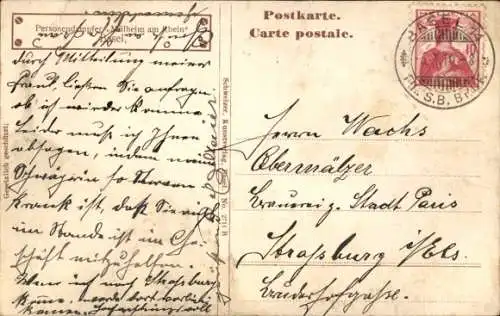 Postkarte.
Carte postale.
Personendampfer "Mülheim am Rhein"
Basel,
durch Mitteilung meiner
Frau, ließen Sie anfragen
ob ich wieder komme
leider muß ich Ihnen
absagen, indem meine
Schwägerin so schwer
krank ist, daß Sie nicht
im Stande ist im Ge-
schäft mitzuhelfen.
Wenn ich nach Straßburg
komme, werde dort vorbei
kommen.
Gesetzlich geschützt.
Schweizer Kunstverlag Basel, Nr. 271 B
BASEL
10
Herrn Wachs
Obermälzer
Brauerei z. Stadt Paris
Strassburg i/Els.
Bruderhofgasse.